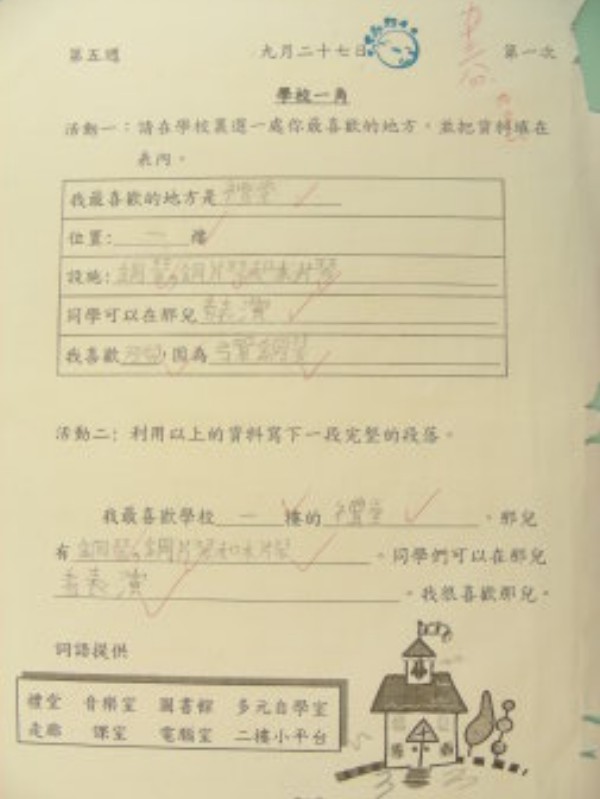 第五週 九月二十七日 第一次
學校一角
活動一：請在學校裏選一處你最喜歡的地方，並把資料填在
表內。
我最喜歡的地方是 禮堂
位置: 一 樓
設施: 鋼琴,鋼片琴和木片琴
同學可以在那兒 看表演
我喜歡那兒,因為 有鋼琴
活動二: 利用以上的資料寫下一段完整的段落。
我最喜歡學校 一 樓的 禮堂 。那兒
有 鋼琴,鋼片琴和木片琴 。同學們可以在那兒
看表演 。我很喜歡那兒。
詞語提供
禮堂 音樂室 圖書館 多元自學室
走廊 課室 電腦室 二樓小平台